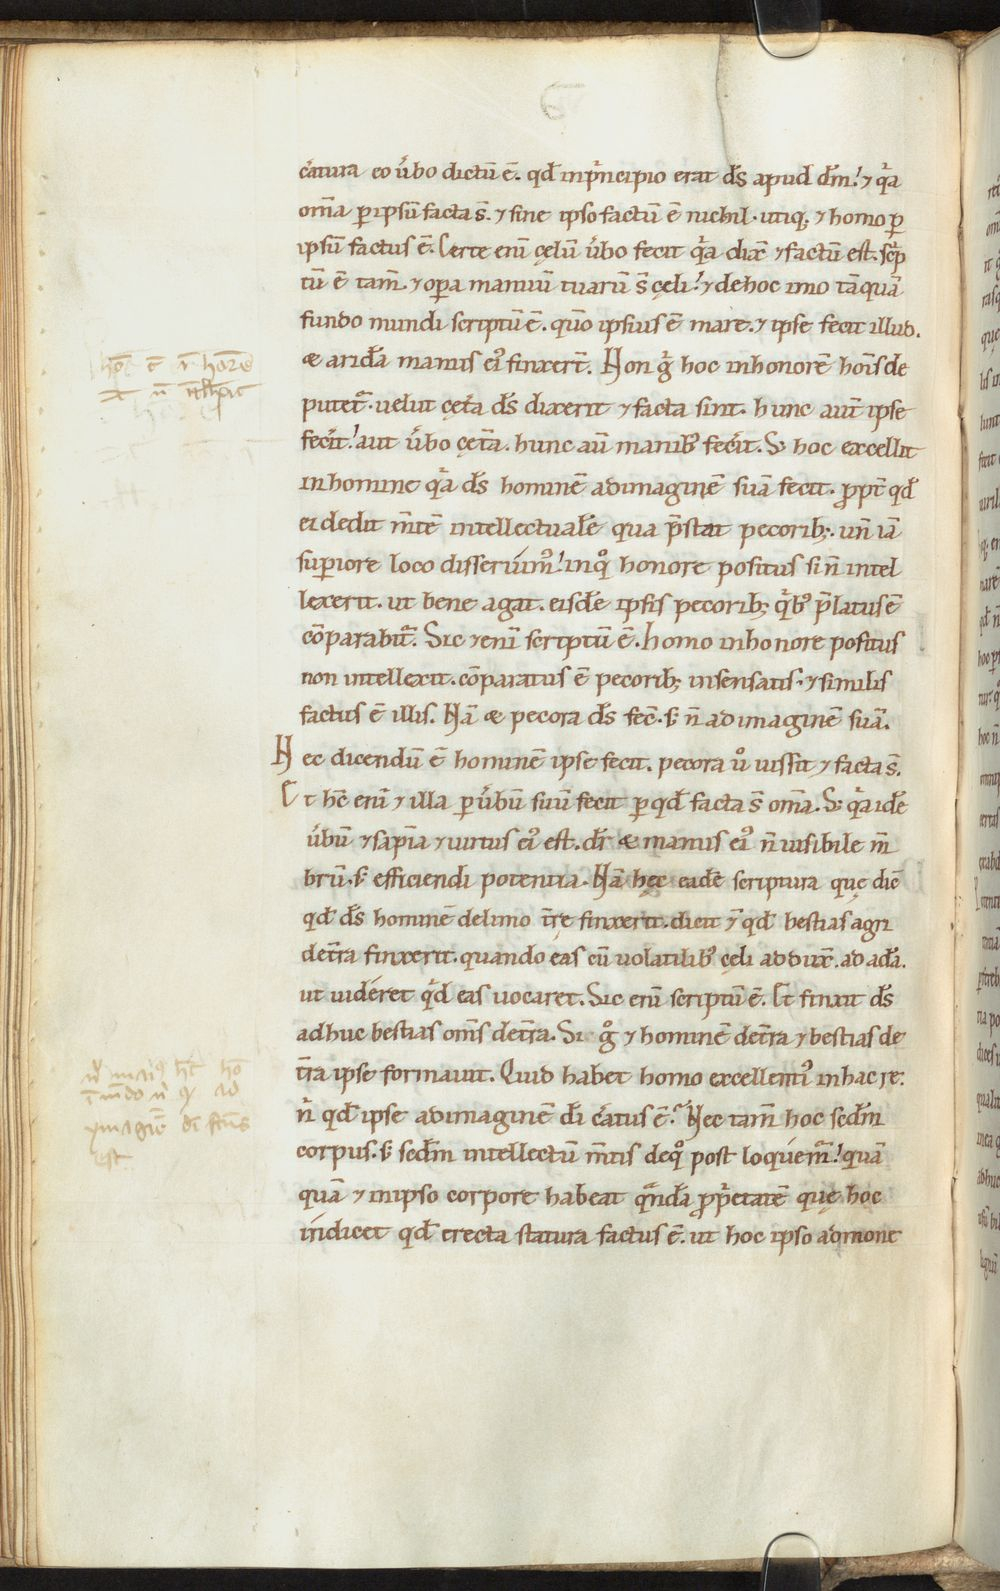 c̄atura eo ủbo dictū ē. qđ inpͥncipio erat d̄s apud d̄m. ⁊ qͥa
om̄a ꝑ ipsū facta s̄. ⁊ sine ipso factū ē nichil. utiq; ⁊ homo ꝑ
ipsū factus ē. Certe eni̅ cęlū ủbo fecit qͥa dix̄ ⁊ factū est. scͥp
tū ē tam̄. ⁊ oꝑa manuū tuarū s̄ cęli. ⁊ dehoc imo tāquā
fundo mundi scriptū ē. qm̄o ipsius ē mare. ⁊ ipse fecit illud.
& arid̄a manus eiꝰ finxer̄t. Non gͥ hoc inhonorē hoi̅s de
putet᷑. uelut cęt̄a d̄s dixerit ⁊ facta sint. hunc aut̄ ipse
fec̄it. aut ủbo cęt̄a. hunc aū manibꝰ fec̄it. S; hoc excellit
inhomine qͥa d̄s hominē adimaginē suā fecit. ꝓpt̄ qđ
ei dedit m̄tē intellectualē qua p̄stat pecorib;. un̄ iā
suꝑiore loco disseruimꝰ. inqͦ honore positus si n̄ intel
lexerit. ut bene agat. eisdē ipsis pecorib; qͥbꝰ p̄latus ē
cōparabit᷑. Sic ⁊ eni̅ scriptū ē. homo inhonore positus
non intellexit. cōparatus ē pecorib; insensatis. ⁊ similis
factus ē illis. Nā & pecora d̄s fec̄. s; n̄ adimaginē suā.
Nec dicendū ē hominē ipse fecit. pecora ủ iussit ⁊ facta s̄.
Et h̄c eni̅ ⁊ illa ꝑ ủbū suū fecit ꝑ qđ facta s̄ om̄a. S; qͥa idē
ủbū ⁊ sapi̅a ⁊ uirtus eiꝰ est. dr̄ & manus eiꝰ n̄ uisibile m̄
brū. s; efficiendi potentia. Nā hęc eadē scriptura quę dic̄
qđ d̄s hominē delimo t̄re finxerit. dicit ⁊ qđ bestias agri
det̄ra finxerit. quando eas cū uolatilibꝰ cęli addux̄. ad ad̄a.
ut uideret qͥd eas uocaret. Sic eni̅ scriptū ē. Et finxit d̄s
adhuc bestias om̄s det̄ra. Si gͦ ⁊ hominē det̄ra ⁊ bestias de
t̄ra ipse formauit. Quid habet homo excellentiꝰ inhac re.
n̄ qđ ipse adimaginē d̄i c̄atus ē. Nec tam̄ hoc secd̄m
corpus. s; secd̄m intellectū m̄tis deqͦ post loquem᷑. quā
quā ⁊ inipso corpore habeat qͣnd̄a ꝓpͥetatē quę hoc
indicet qđ erecta statura factus ē. ut hoc ipso admone